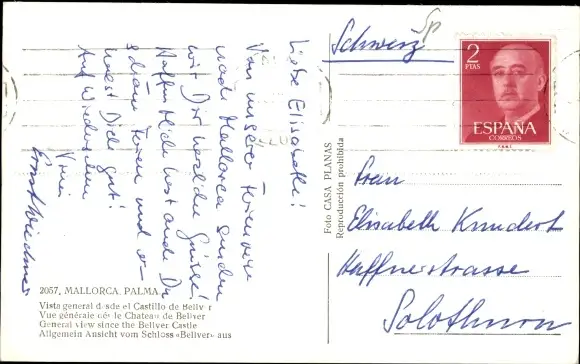 Liebe Elisabeth!
Von unserer Ferienreise
nach Mallorca senden
wir Dir herzliche Grüsse!
Hoffentlich hast auch Du
schöne Ferien und er-
holst Dich gut!
Auf Wiedersehen
Ernst
2057, MALLORCA. PALMA
Vista general desde el Castillo de Bellver
Vue générale dès le Chateau de Bellver
General view since the Bellver Castle
Allgemein Ansicht vom Schloss «Bellver» aus
Foto CASA PLANAS
Reproducción prohibida
Schweiz
2
PTAS
ESPAÑA
CORREOS
Frau
Elisabeth Kundert
Haffnerstrasse
Solothurn